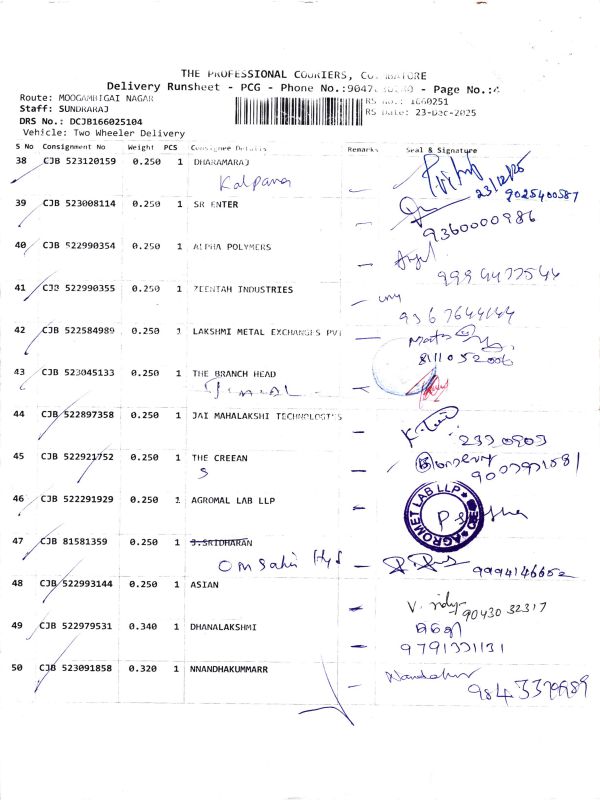 THE PROFESSIONAL COURIERS, COIMBATORE
Delivery Runsheet - PCG - Phone No.:9047 - Page No.:4
Route: MOOGAMBIGAI NAGAR
RS No.: 1660251
Staff: SUNDRARAJ
RS Date: 23-Dec-2025
DRS No.: DCJB166025104
Vehicle: Two Wheeler Delivery
S No Consignment No Weight PCS Consignee Details Remarks Seal & Signature
38 CJB 523120159 0.250 1 DHARAMARAJ
Kalpana 23/12/25 9025400587
39 CJB 523008114 0.250 1 SR ENTER
9360000986
40 CJB 522990354 0.250 1 ALPHA POLYMERS
9994477544
41 CJB 522990355 0.250 1 ZEENTAH INDUSTRIES
9367644144
42 CJB 522584989 0.250 1 LAKSHMI METAL EXCHANGES PVT
8111052006
43 CJB 523045133 0.250 1 THE BRANCH HEAD
44 CJB 522897358 0.250 1 JAI MAHALAKSHI TECHNOLOGIES
45 CJB 522921752 0.250 1 THE CREEAN
S
46 CJB 522291929 0.250 1 AGROMAL LAB LLP
AGROMET LAB LLP
47 CJB 81581359 0.250 1 S.SRIDHARAN
Om Sakthi Hyd 9994146652
48 CJB 522993144 0.250 1 ASIAN
V. 90430 32317
49 CJB 522979531 0.340 1 DHANALAKSHMI
9791331131
50 CJB 523091858 0.320 1 NNANDHAKUMMARR
Nandakumar